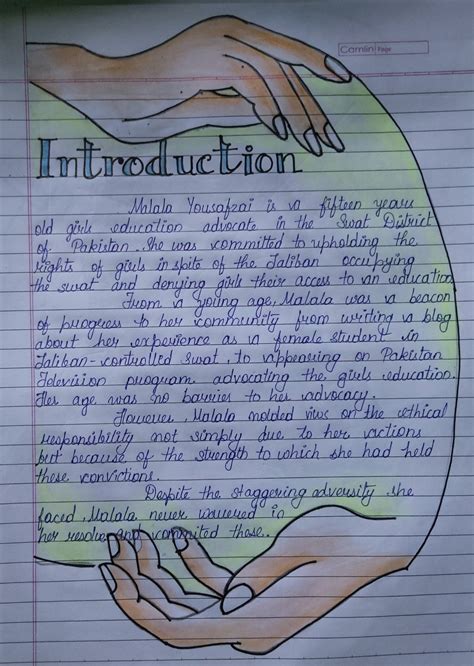 Camlin Page
Introduction
Malala Yousafzai is a fifteen years
old girls education advocate in the Swat District
of Pakistan. She was committed to upholding the
rights of girls in spite of the Taliban occupying
the swat and denying girls their access to an education
From a young age, Malala was a beacon
of progress to her community from writing a blog
about her experience as a female student in
Taliban-controlled Swat, to appearing on Pakistan
Television program advocating the girls education.
Her age was no barriers to her advocacy.
However, Malala molded views on the ethical
responsibility not simply due to her actions
but because of the strength to which she had held
these convictions.
Despite the staggering adversity she
faced, Malala never wavered in
her resolve and commited these..